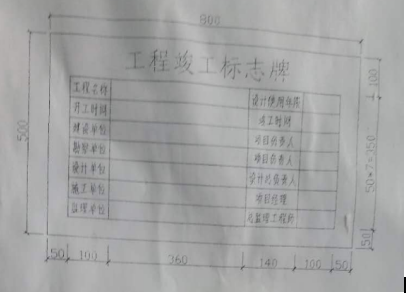 800
工程竣工标志牌
工程名称 设计使用年限
开工时间 竣工时间
建设单位 项目负责人
勘察单位 项目负责人
设计单位 设计总负责人
施工单位 项目经理
监理单位 总监理工程师
500
100
50*7=350
50
50 100 360 140 100 50